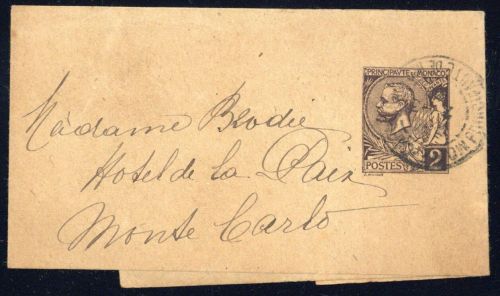 PRINCIPAUTÉ DE MONACO
Madame Brodie
Hotel de la Paix
Monte Carlo
POSTES 2